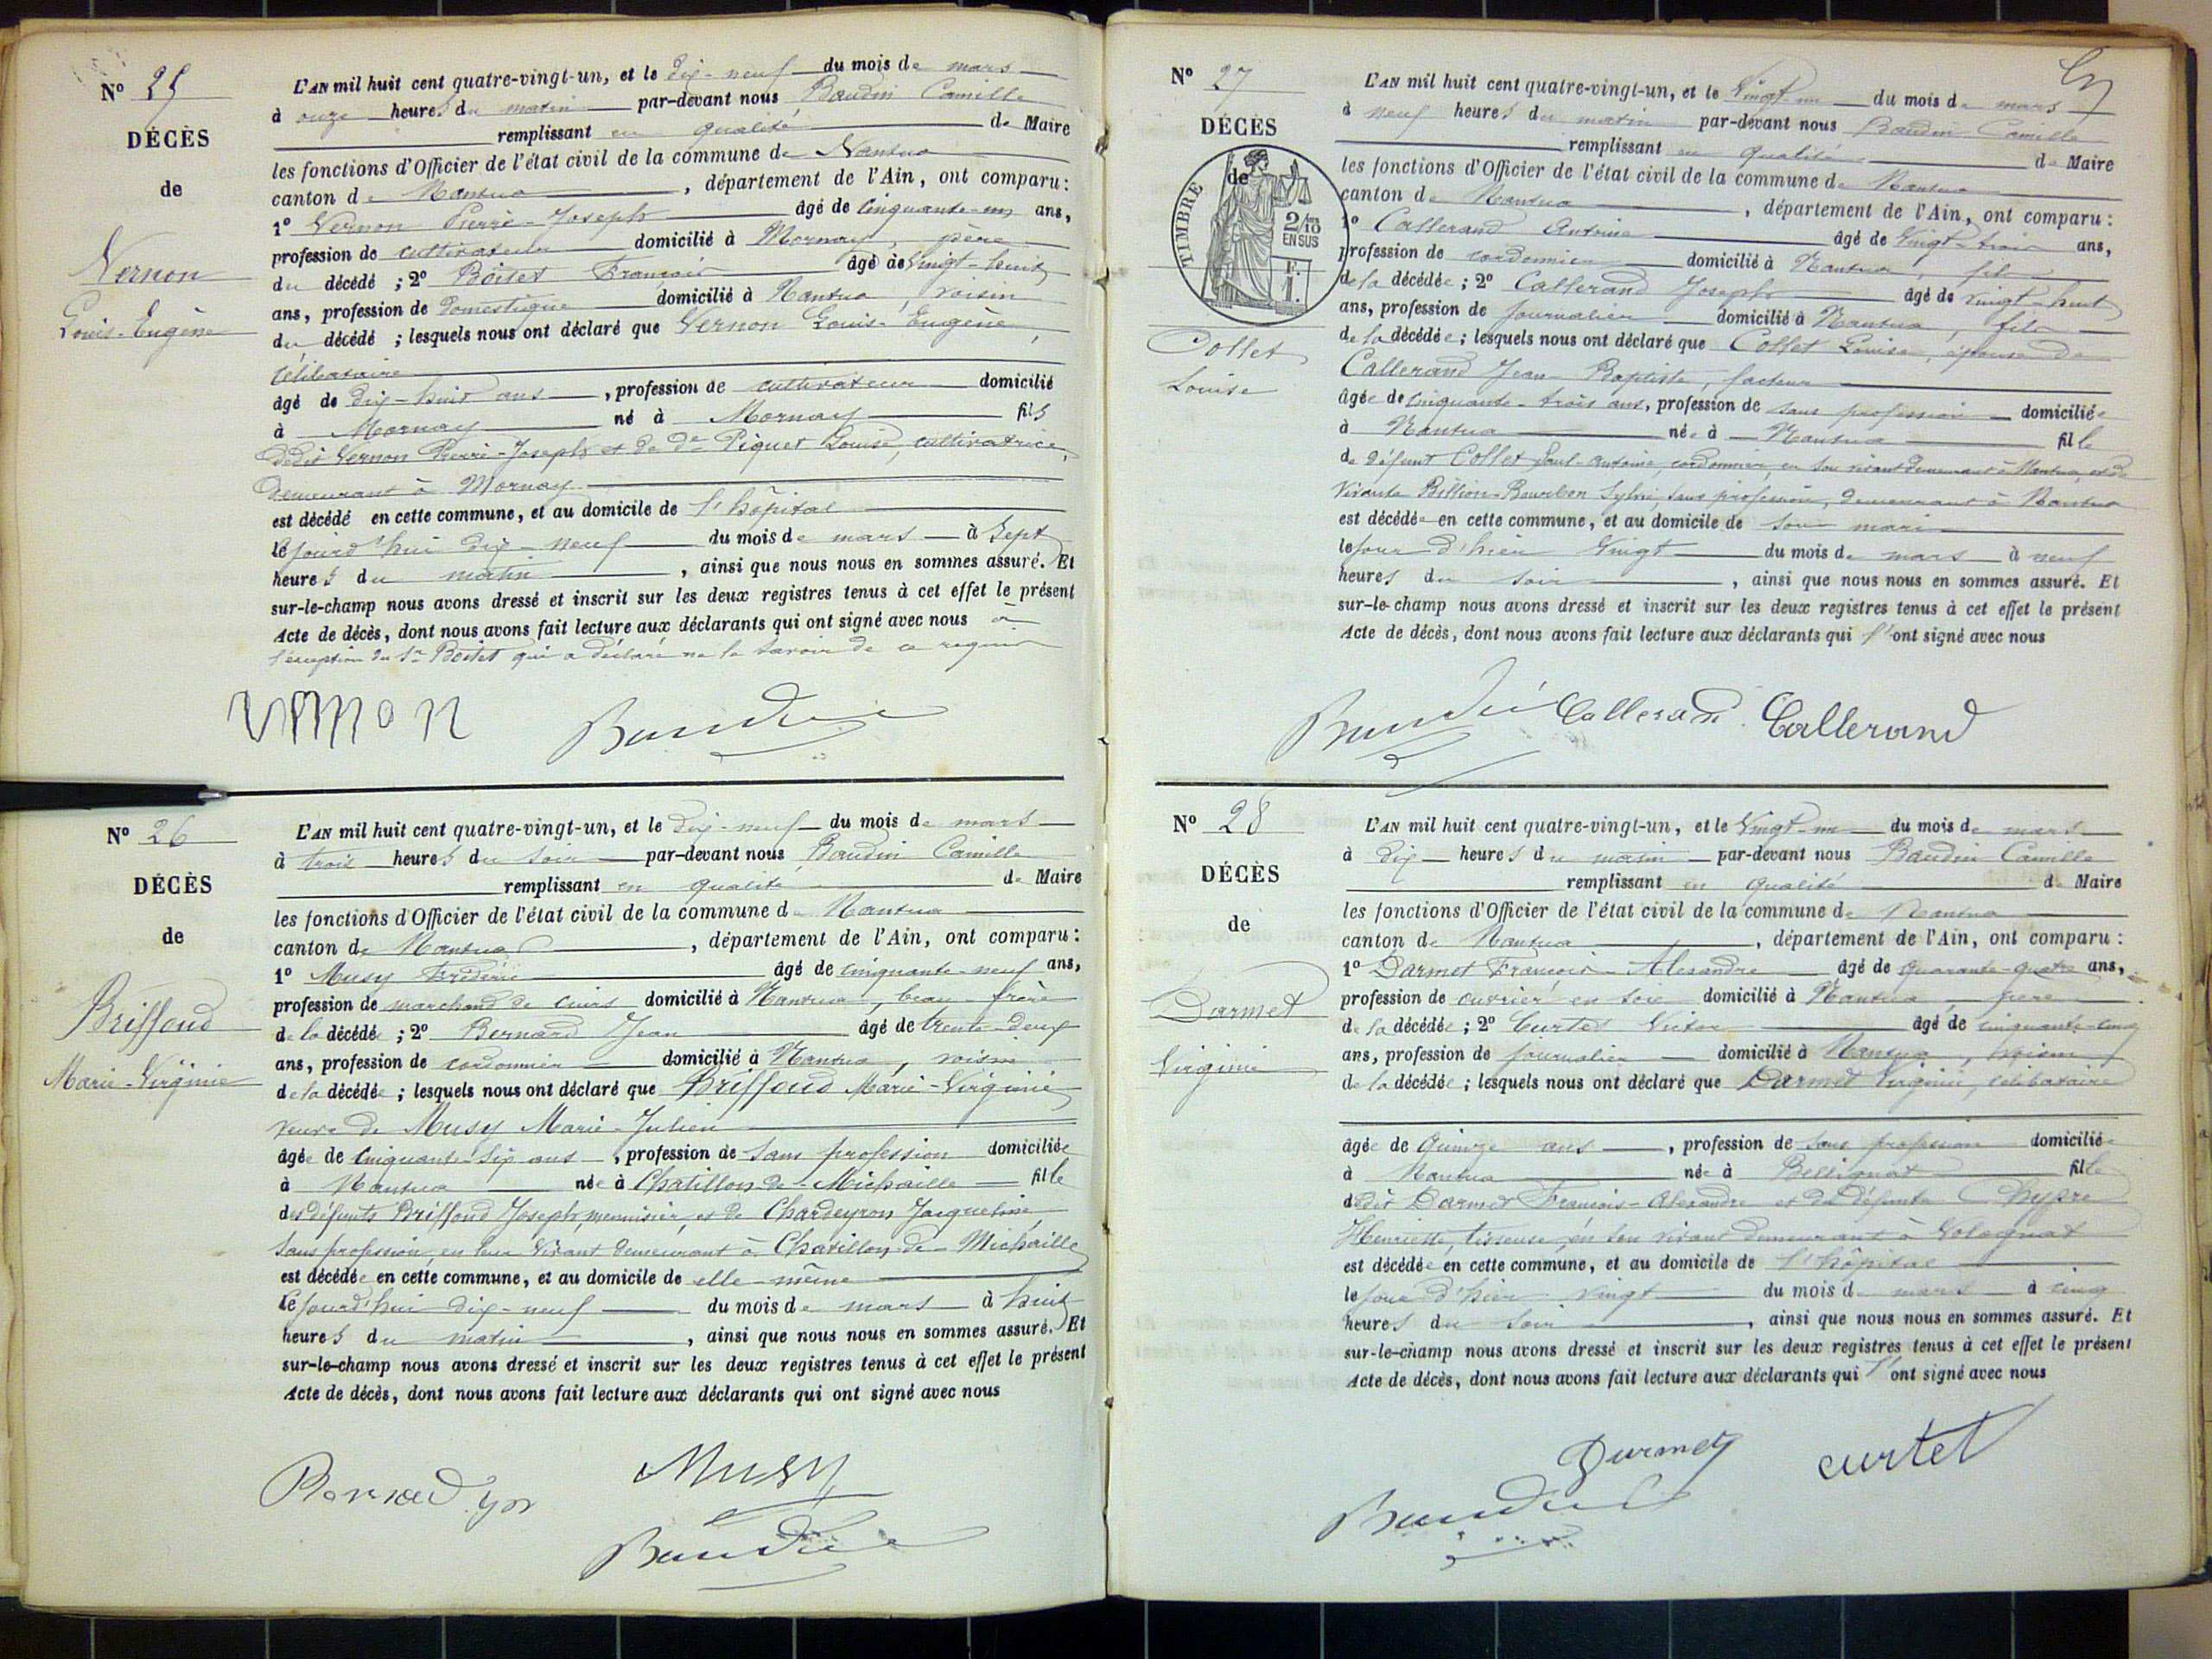 N° 25
DÉCÈS
de
Vernon
Louis-Eugène
L'AN mil huit cent quatre-vingt-un, et le dix-neuf du mois de mars
à onze heures du matin par-devant nous Baudin Camille
remplissant en qualité de Maire
les fonctions d'Officier de l'état civil de la commune de Nantua
canton de Nantua, département de l'Ain, ont comparu :
1° Vernon Pierre-Joseph âgé de cinquante-un ans,
profession de cultivateur domicilié à Mornay, père
du décédé ; 2° Boitet François âgé de vingt-huit
ans, profession de domestique domicilié à Nantua, voisin
du décédé ; lesquels nous ont déclaré que Vernon Louis-Eugène,
célibataire
âgé de dix-huit ans, profession de cultivateur domicilié
à Mornay né à Mornay fils
dudit Vernon Pierre-Joseph et de de Piquet Louise, cultivatrice,
demeurant à Mornay
est décédé en cette commune, et au domicile de l'hôpital
le jourd'hui dix-neuf du mois de mars à sept
heures du matin, ainsi que nous nous en sommes assuré. Et
sur-le-champ nous avons dressé et inscrit sur les deux registres tenus à cet effet le présent
Acte de décès, dont nous avons fait lecture aux déclarants qui ont signé avec nous à
l'exception du Sr Boitet qui a déclaré ne le savoir de ce requis
vernon Baudin
N° 26
DÉCÈS
de
Briffoud
Marie-Virginie
L'AN mil huit cent quatre-vingt-un, et le dix-neuf du mois de mars
à trois heures du soir par-devant nous Baudin Camille
remplissant en qualité de Maire
les fonctions d'Officier de l'état civil de la commune de Nantua
canton de Nantua, département de l'Ain, ont comparu :
1° Musy Frédéric âgé de cinquante-neuf ans,
profession de marchand de cuirs domicilié à Nantua, beau-frère
de la décédée ; 2° Bernard Jean âgé de trente-deux
ans, profession de cordonnier domicilié à Nantua, voisin
de la décédée ; lesquels nous ont déclaré que Briffoud Marie-Virginie
veuve de Musy Marie-Julien
âgée de cinquante-six ans, profession de sans profession domiciliée
à Nantua née à Chatillon-de-Michaille fille
des défunts Briffoud Joseph, menuisier, et de Chardeyron Jacqueline,
sans profession, en leur vivant demeurant à Chatillon-de-Michaille
est décédée en cette commune, et au domicile de elle-même
le jourd'hui dix-neuf du mois de mars à huit
heures du matin, ainsi que nous nous en sommes assuré. Et
sur-le-champ nous avons dressé et inscrit sur les deux registres tenus à cet effet le présent
Acte de décès, dont nous avons fait lecture aux déclarants qui ont signé avec nous
Bernard Musy
Baudin
N° 27
DÉCÈS
de
TIMBRE
2/10
EN SUS
Collet
Louise
L'AN mil huit cent quatre-vingt-un, et le vingt-un du mois de mars
à neuf heures du matin par-devant nous Baudin Camille
remplissant en qualité de Maire
les fonctions d'Officier de l'état civil de la commune de Nantua
canton de Nantua, département de l'Ain, ont comparu :
1° Callerand Antoine âgé de vingt-trois ans,
profession de cordonnier domicilié à Nantua, fils
de la décédée ; 2° Callerand Joseph âgé de vingt-huit
ans, profession de journalier domicilié à Nantua, fils
de la décédée ; lesquels nous ont déclaré que Collet Louise, épouse de
Callerand Jean-Baptiste, facteur
âgée de cinquante-trois ans, profession de sans profession domiciliée
à Nantua née à Nantua fille
de défunt Collet Paul-Antoine, cordonnier, en son vivant demeurant à Nantua, et de
vivante Billion-Bourbon Sylvie, sans profession, demeurant à Nantua
est décédée en cette commune, et au domicile de son mari
le jour d'hier vingt du mois de mars à neuf
heures du soir, ainsi que nous nous en sommes assuré. Et
sur-le-champ nous avons dressé et inscrit sur les deux registres tenus à cet effet le présent
Acte de décès, dont nous avons fait lecture aux déclarants qui l'ont signé avec nous
Baudin Callerand Callerand
N° 28
DÉCÈS
de
Darmet
Virginie
L'AN mil huit cent quatre-vingt-un, et le vingt-un du mois de mars
à dix heures du matin par-devant nous Baudin Camille
remplissant en qualité de Maire
les fonctions d'Officier de l'état civil de la commune de Nantua
canton de Nantua, département de l'Ain, ont comparu :
1° Darmet François-Alexandre âgé de quarante-quatre ans,
profession de ouvrier en soie domicilié à Nantua, père
de la décédée ; 2° Curtet Victor âgé de cinquante-cinq
ans, profession de journalier domicilié à Nantua, voisin
de la décédée ; lesquels nous ont déclaré que Darmet Virginie, célibataire
âgée de quinze ans, profession de sans profession domiciliée
à Nantua née à Bellignat fille
dudit Darmet François-Alexandre et de défunte Chypre
Henriette, tisseuse, en son vivant demeurant à Volognat
est décédée en cette commune, et au domicile de l'hôpital
le jour d'hier vingt du mois de mars à cinq
heures du soir, ainsi que nous nous en sommes assuré. Et
sur-le-champ nous avons dressé et inscrit sur les deux registres tenus à cet effet le présent
Acte de décès, dont nous avons fait lecture aux déclarants qui l'ont signé avec nous
Darmet curtet
Baudin